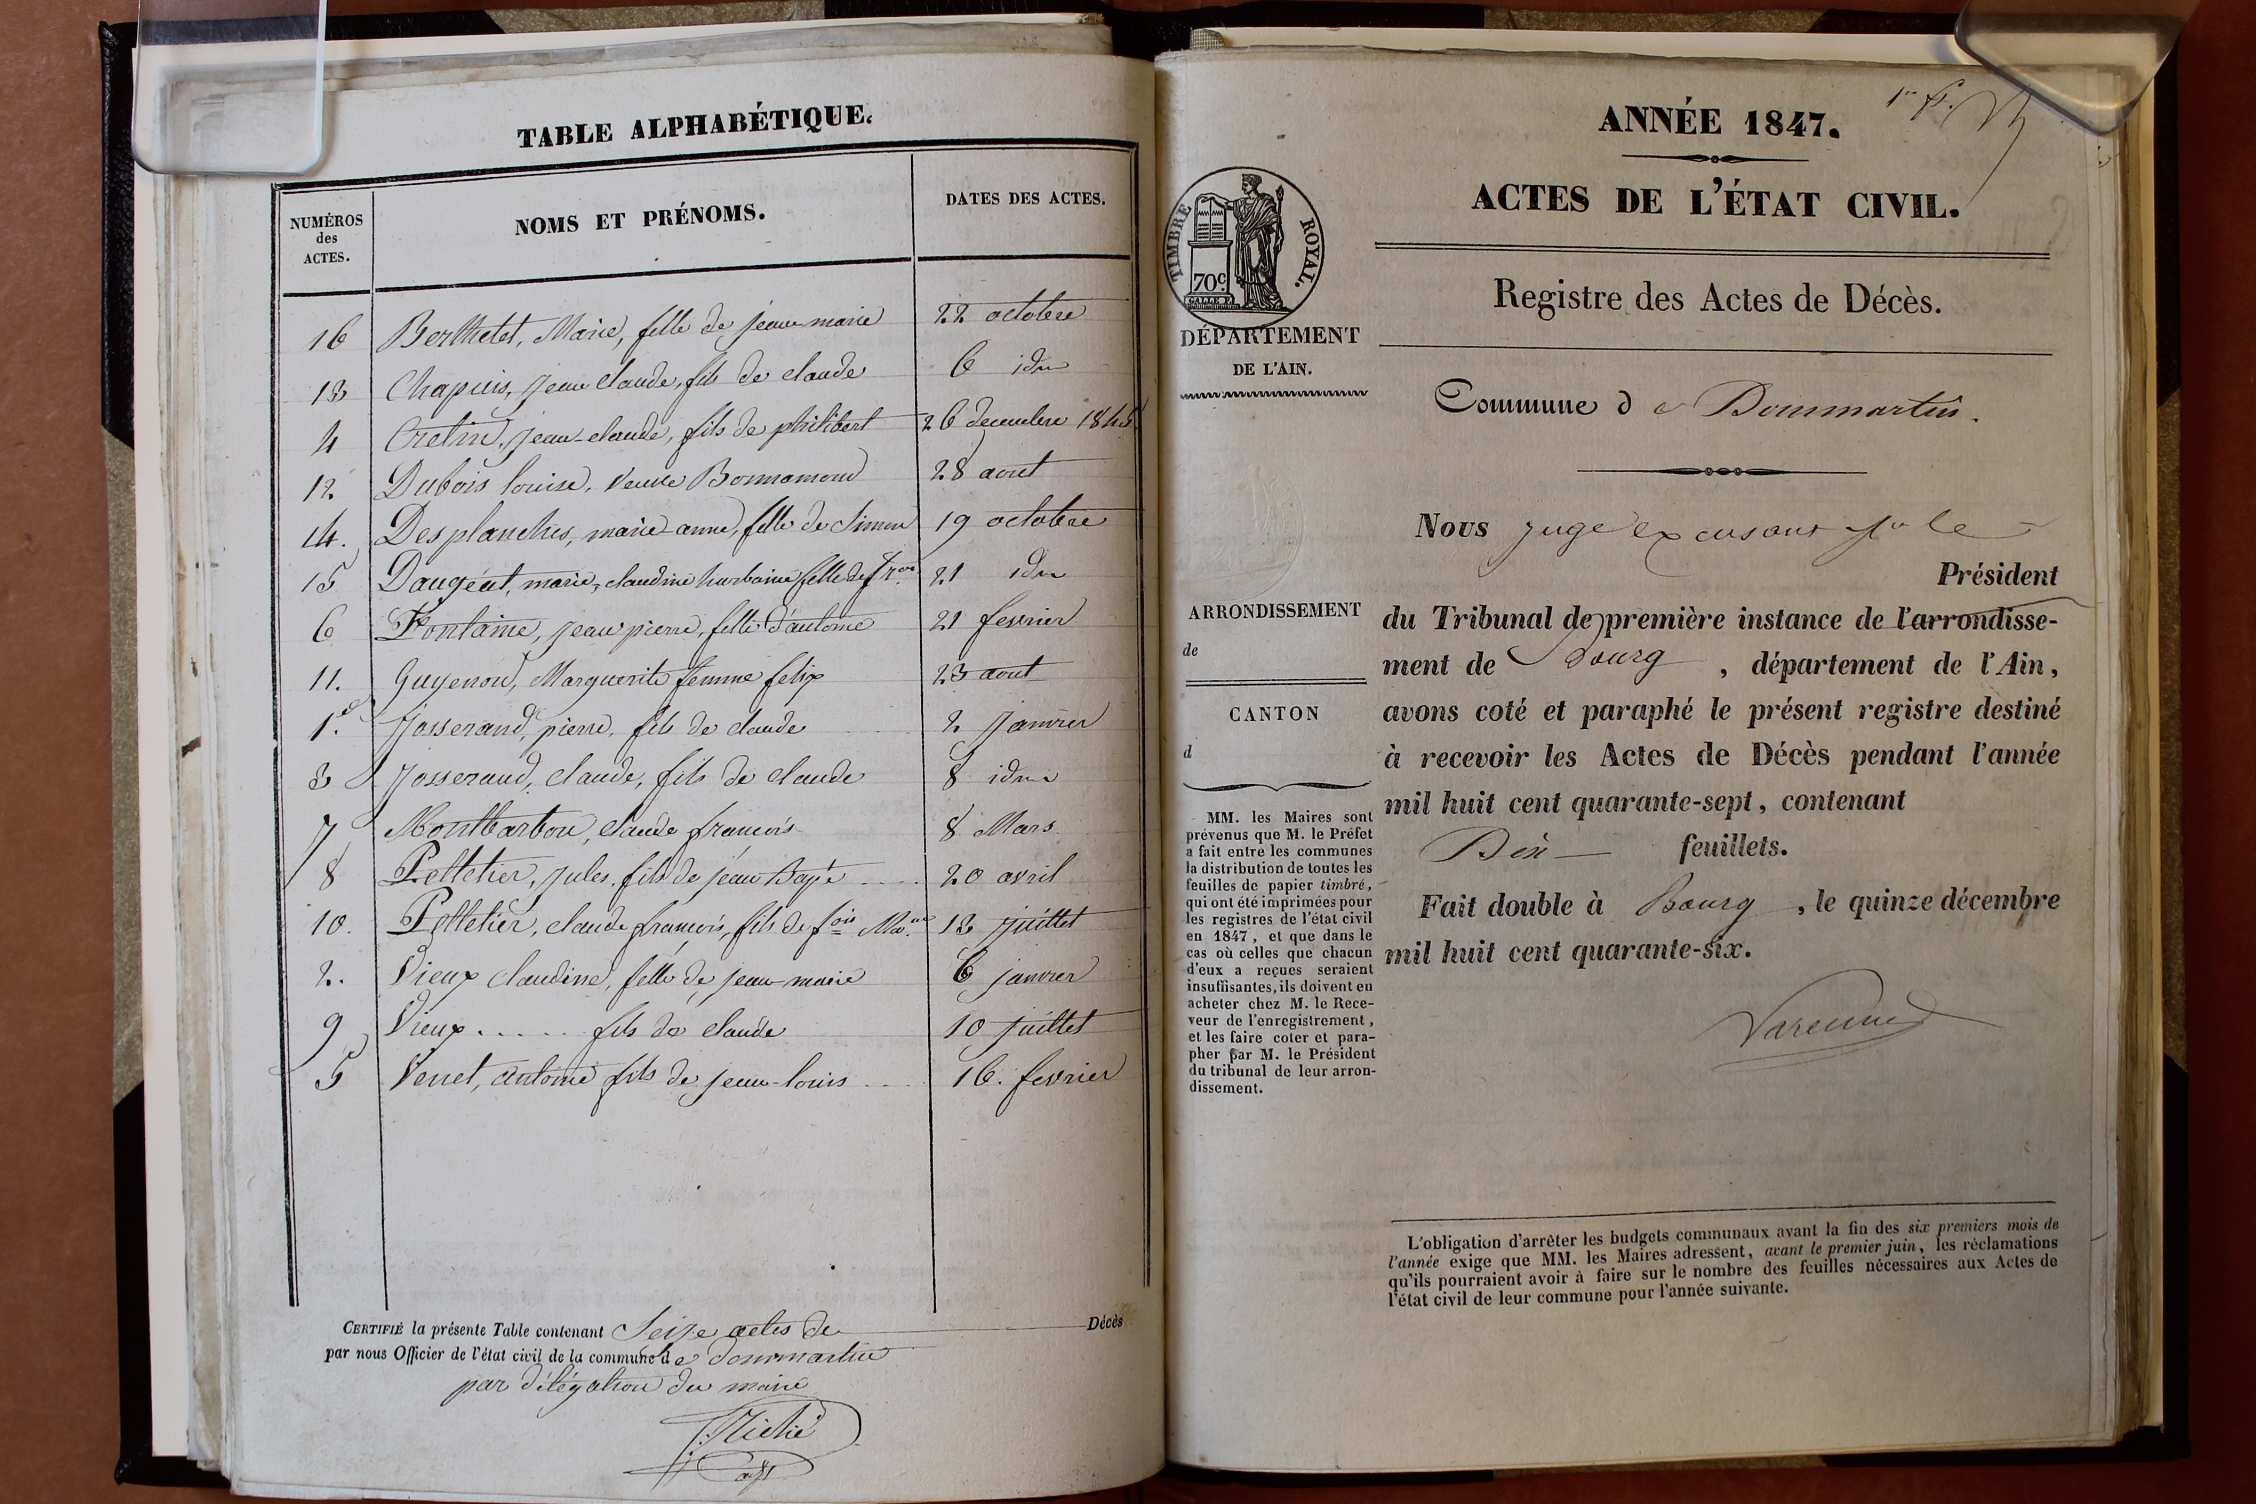 TABLE ALPHABÉTIQUE.
NUMÉROS
des
ACTES.
NOMS ET PRÉNOMS.
DATES DES ACTES.
16 Berthelet, Marie, fille de jean marie 22 octobre
13 Chapuis, Jean claude, fils de claude 6 idm
4 Cretin, Jean-claude, fils de philibert 26 decembre
12. Dubois louise, veuve Bonnamour 28 aout
14. Desplanches, marie anne, fille de Simon 19 octobre
15 marie, claudine fille de 21 idm
6 Fontaine, jean pierre, d'antoine 21 fevrier
11. Guyenon, Marguerite femme felix 23 aout
1. Josserand, pierre, fils de claude 2 Janvier
3 Josserand, claude, fils de claude 8 idm
7 Montbarbon, claude françois 8 Mars
8 Pelletier, Jules, fils de jean Bapte 20 avril
10. Pelletier, claude françois, fils de fois 13 juillet
2. Vieux claudine, fille de jean-marie 6 janvier
9 Vieux ..... fils de claude 10 juillet
5 Venet, antoine fils de jean-louis 16. fevrier
CERTIFIÉ la présente Table contenant Seize actes de Décès
par nous Officier de l'état civil de la commune de dommartin
par délégation du maire
1er f.
ANNÉE 1847.
ACTES DE L'ÉTAT CIVIL.
Registre des Actes de Décès.
TIMBRE ROYAL.
70c
DÉPARTEMENT
DE L'AIN.
Commune de Dommartin.
Nous juge le
Président
du Tribunal de première instance de l'arrondisse-
ment de Bourg, département de l'Ain,
avons coté et paraphé le présent registre destiné
à recevoir les Actes de Décès pendant l'année
mil huit cent quarante-sept, contenant
Dix feuillets.
Fait double à Bourg, le quinze décembre
mil huit cent quarante-six.
Varenne
ARRONDISSEMENT
de
CANTON
d
MM. les Maires sont
prévenus que M. le Préfet
a fait entre les communes
la distribution de toutes les
feuilles de papier timbré,
qui ont été imprimées pour
les registres de l'état civil
en 1847, et que dans le
cas où celles que chacun
d'eux a reçues seraient
insuffisantes, ils doivent en
acheter chez M. le Rece-
veur de l'enregistrement,
et les faire coter et para-
pher par M. le Président
du tribunal de leur arron-
dissement.
L'obligation d'arrêter les budgets communaux avant la fin des six premiers mois de
l'année exige que MM. les Maires adressent, avant le premier juin, les réclamations
qu'ils pourraient avoir à faire sur le nombre des feuilles nécessaires aux Actes de
l'état civil de leur commune pour l'année suivante.